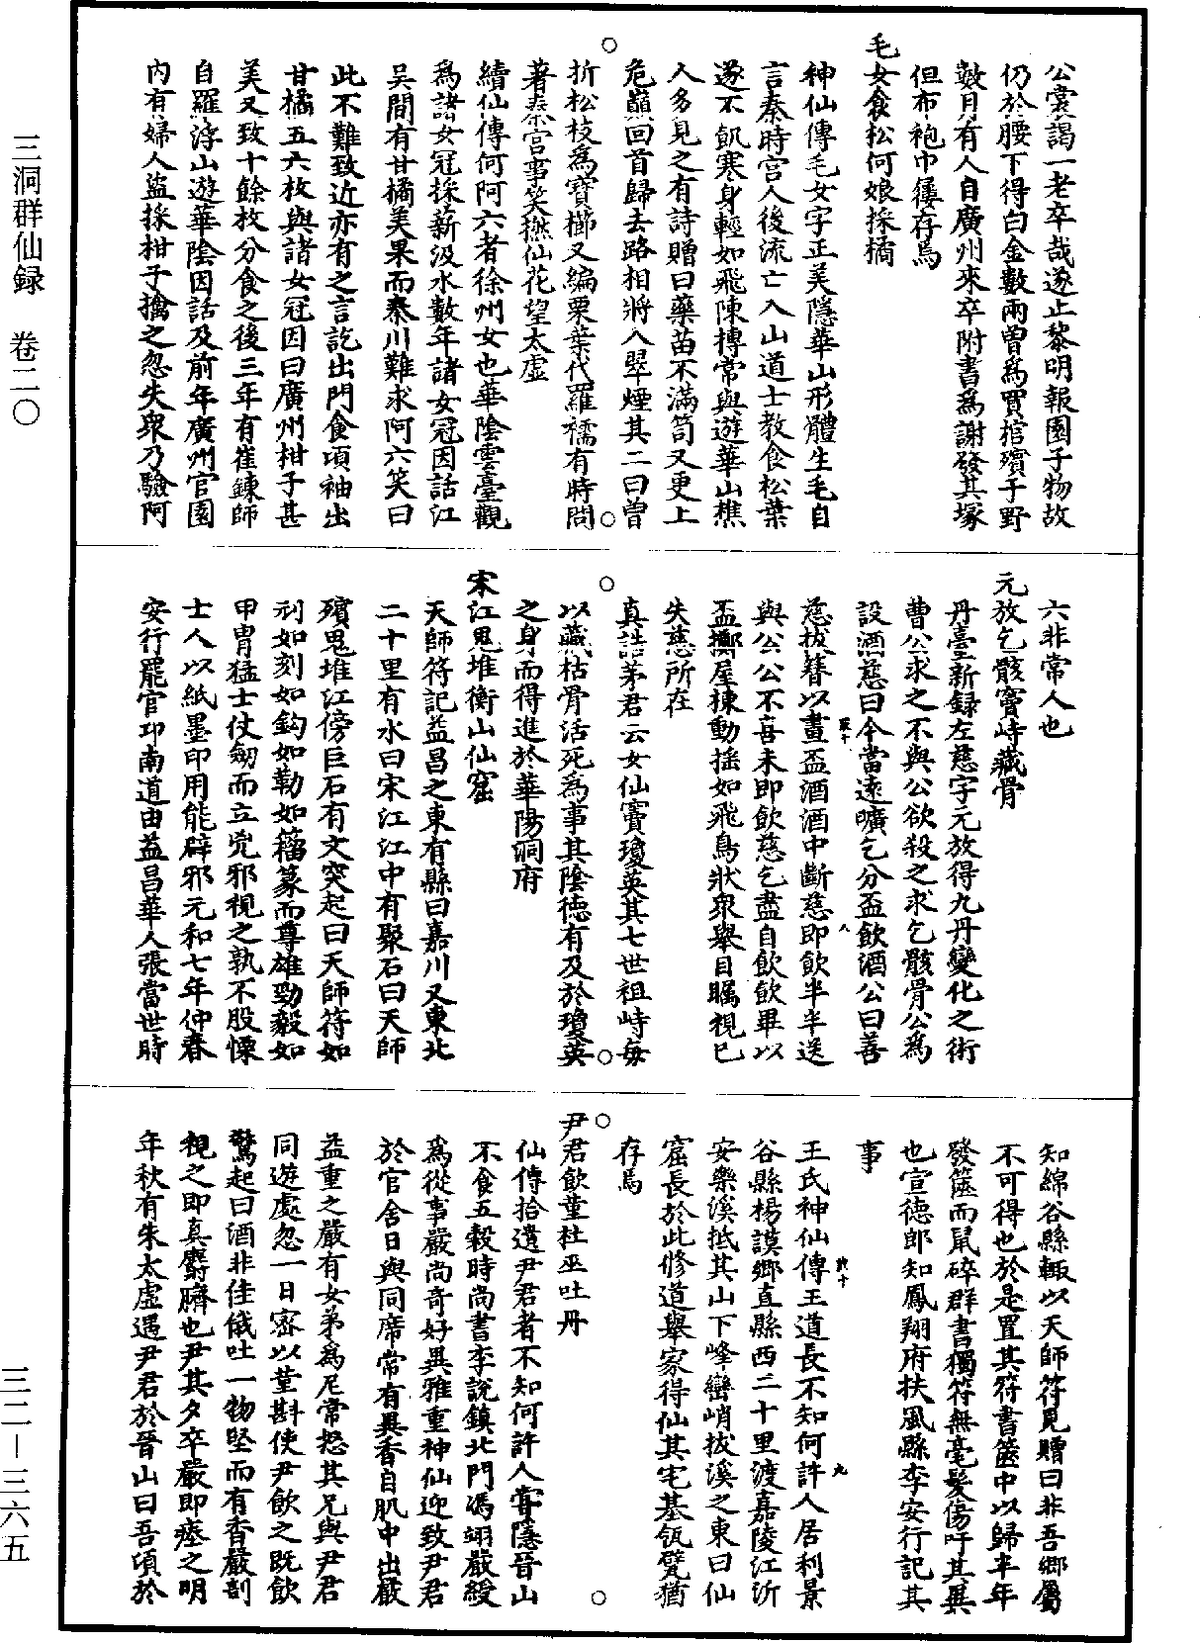 三洞群仙録　卷二〇
公裳謁一老卒哉遂止黎明報園子物故
仍於腰下得白金數兩曾爲買棺殯于野
數月有人自廣州來卒附書爲謝發其塚
但布袍巾屨存焉
毛女食松何娘採橘
神仙傳毛女字正美隱華山形體生毛自
言秦時宮人後流亡入山道士教食松葉
遂不飢寒身輕如飛陳摶常與遊華山樵
人多見之有詩贈曰藥苗不滿笥又更上
危巔回首歸去路相將入翠煙其二曰曾
折松枝爲寶櫛又編栗葉代羅襦有時問
著秦宮事笑撚仙花望太虛
續仙傳何阿六者徐州女也華陰雲臺觀
爲諸女冠採薪汲水數年諸女冠因話江
吳間有甘橘美果而秦川難求阿六笑曰
此不難致近亦有之言訖出門食頃袖出
甘橘五六枚與諸女冠因曰廣州柑子甚
美又致十餘枚分食之後三年有崔鍊師
自羅浮山遊華陰因話及前年廣州官園
内有婦人盜採柑子擒之忽失衆乃驗阿
六非常人也
元放乞骸竇峙藏骨
丹臺新録左慈字元放得九丹變化之術
曹公求之不與公欲殺之求乞骸骨公爲
設酒慈曰今當遠曠乞分盃飲酒公曰善
慈拔簪以畫盃酒酒中斷慈即飲半半送
與公公不喜未即飲慈乞盡自飲飲畢以
盃擲屋棟動摇如飛鳥狀衆舉目矚視已
失慈所在
真誥茅君云女仙竇瓊英其七世祖峙每
以藏枯骨活死爲事其陰德有及於瓊英
之身而得進於華陽洞府
宋江鬼堆衡山仙窟
天師符記益昌之東有縣曰嘉川又東北
二十里有水曰宋江江中有聚石曰天師
殯鬼堆江傍巨石有文突起曰天師符如
刓如刻如鈎如勒如籀篆而尊雄勁毅如
甲冑猛士仗劒而立兇邪視之孰不股慄
士人以紙墨印用能辟邪元和七年仲春
安行罷官邛南道由益昌華人張當世時
知綿谷縣輙以天師符見贈曰非吾鄉屬
不可得也於是置其符書篋中以歸半年
發篋而鼠碎群書獨符無毫髮傷吁其異
也宣德郎知鳳翔府扶風縣李安行記其
事
王氏神仙傳王道長不知何許人居利景
谷縣楊謨鄉直縣西二十里渡嘉陵江沂
安樂溪抵其山下峰巒峭拔溪之東曰仙
窟長於此修道舉家得仙其宅基瓴甓猶
存焉
尹君飲堇杜巫吐丹
仙傳拾遺尹君者不知何許人嘗隱晉山
不食五穀時尚書李説鎮北門馮翊嚴綬
爲從事嚴尚奇好異雅重神仙迎致尹君
於官舍日與同席常有異香自肌中出嚴
益重之嚴有女弟爲尼常怒其兄與尹君
同遊處忽一日密以堇斟使尹飲之既飲
驚起曰酒非佳俄吐一物堅而有香嚴剖
視之即真麝臍也尹其夕卒嚴即瘞之明
年秋有朱太虛遇尹君於晉山曰吾頃於
三二－三六五